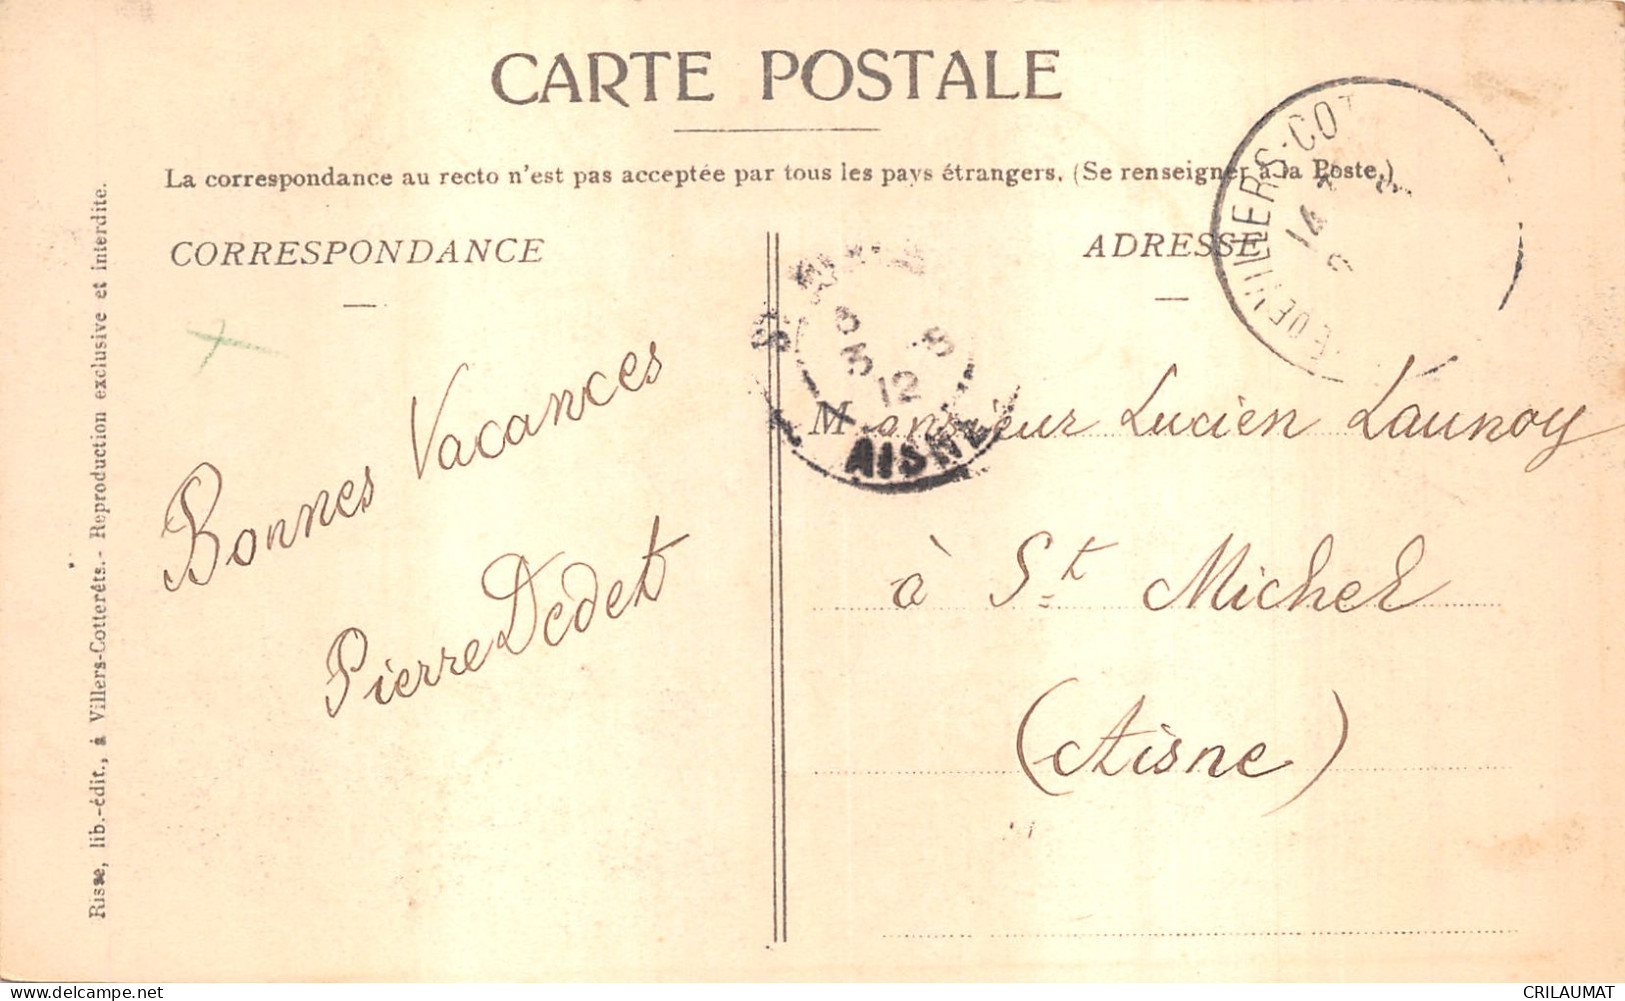 CARTE POSTALE
La correspondance au recto n'est pas acceptée par tous les pays étrangers. (Se renseigner à la Poste.)
CORRESPONDANCE
ADRESSE
VILLERS-COT
14
AISNE
12
Bonnes Vacances
Pierre Dedet
Monsieur Lucien Launoy
à St Michel
(Aisne)
Risse, lib.-édit., à Villers-Cotterêts.- Reproduction exclusive et interdite.
CRILAUMAT